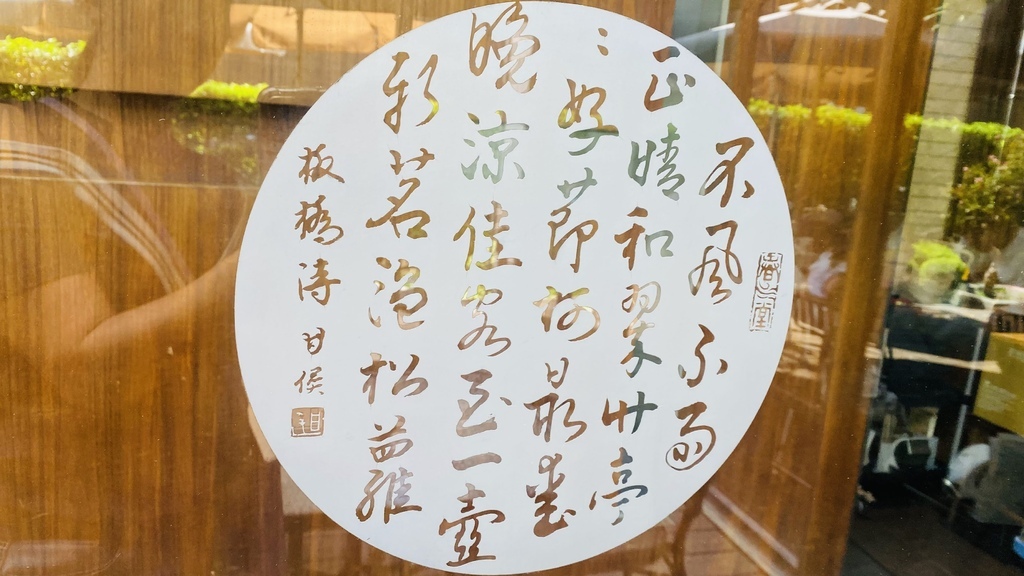 不風不雨
正晴和翠竹亭
〻好莭柯最愛
晚涼佳客至一壺
新茗泡松蘿
板橋詩 甘侯